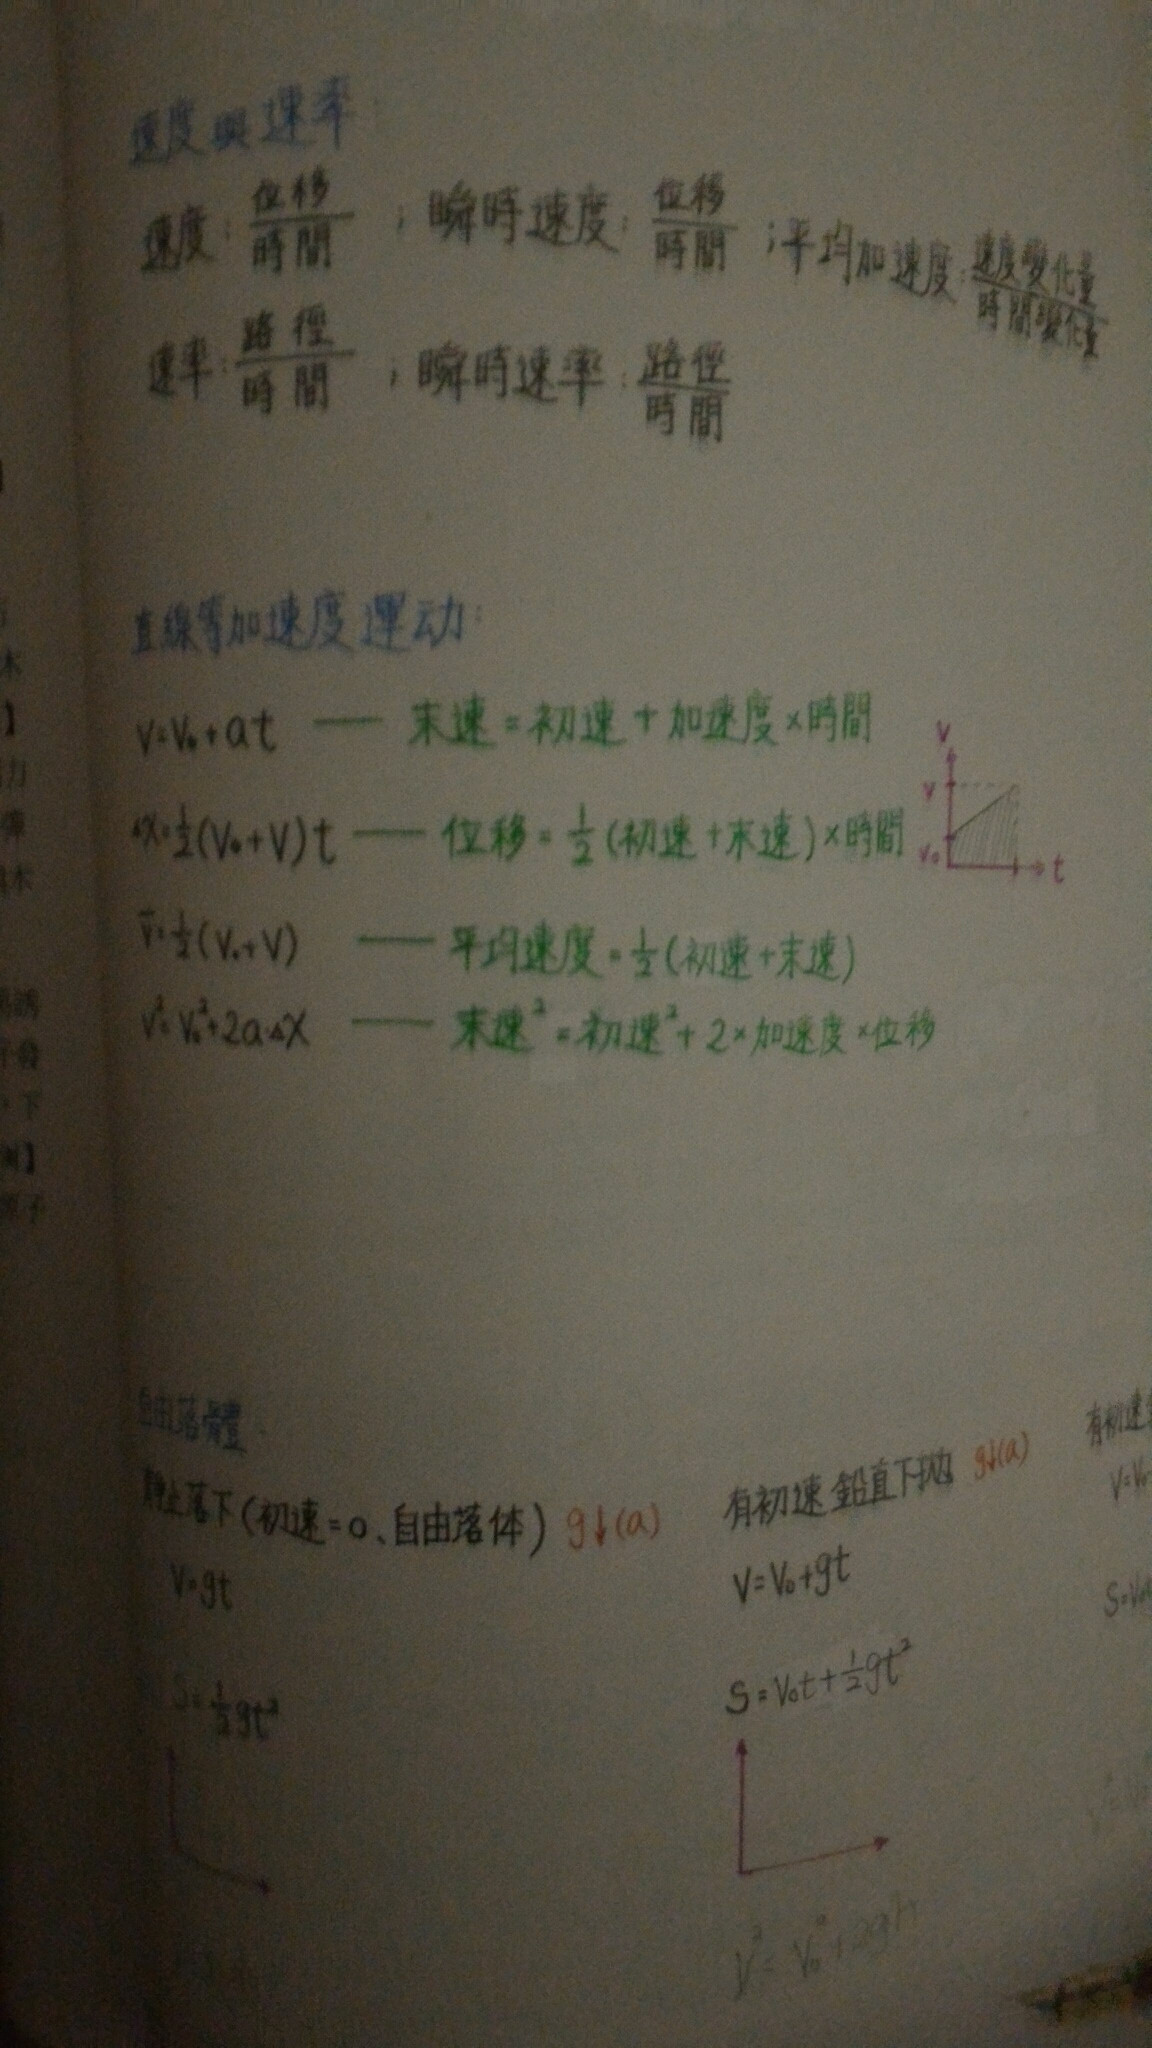 速度與速率:
速度:位移/時間 ; 瞬時速度:位移/時間 ;平均加速度:速度變化量/時間變化量
速率:路徑/時間 ; 瞬時速率:路徑/時間
直線等加速度運动:
V=V₀+at — 末速=初速+加速度×時間
ΔX=½(V₀+V)t — 位移=½(初速+末速)×時間
V̄=½(V₀+V) — 平均速度=½(初速+末速)
V²=V₀²+2a·ΔX — 末速²=初速²+2×加速度×位移
V
V
V₀
t
自由落體:
靜止落下(初速=0、自由落体) g↓(a)
V=gt
S=½gt²
有初速鉛直下拋 g↓(a)
V=V₀+gt
S=V₀t+½gt²
V²=V₀²+2gh
有初速
V=V₀
S=V₀